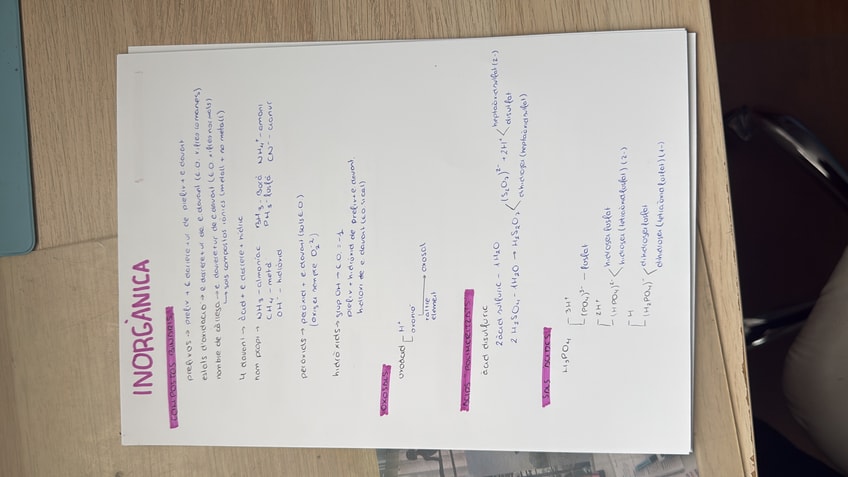 INORGÀNICA
COMPOSTOS BINARIS
prefixos → prefix + E darrere + ur de prefix + E davant
estats d'oxidació → E darrere + ur de E davant (E.O. xifres romanes)
nombre de càrrega → E darrere + ur de E davant (E.O. xifres normals)
↳ sols compostos iònics (metall + no metall)
4 davant → àcid + E darrere + hídric
nom propi → NH3 - amoníac BH3 - borà NH4+ - amoni
CH4 - metà PH3 - fosfà CN- - cianur
OH- - hidròxid
peròxids → peròxid + E davant (sols E.O.)
(oxigen sempre O2-2)
hidròxids → grup OH → E.O. = -1
prefix + hidròxid de prefix + E davant
hidròxid de E davant (E.O. si cal)
OXOSALS
oxoàcid H+
oxoanió
rallle → oxosal
element
ÀCIDS POLIMERITZATS
àcid disulfúric
2 àcid sulfúric - 1 H2O
2 H2SO4 - 1 H2O → H2S2O7 (S2O7)2- + 2H+ heptaòxidosulfat (2-)
disulfat
dihidrogen (heptaòxidosulfat)
SALS ÀCIDES
H3PO4 3H+
(PO4)3- - fosfat
2H+
(HPO4)2- hidrogenfosfat
hidrogen (tetraòxidofosfat) (2-)
H
(H2PO4) dihidrogenfosfat
dihidrogen (tetraòxidofosfat) (1-)